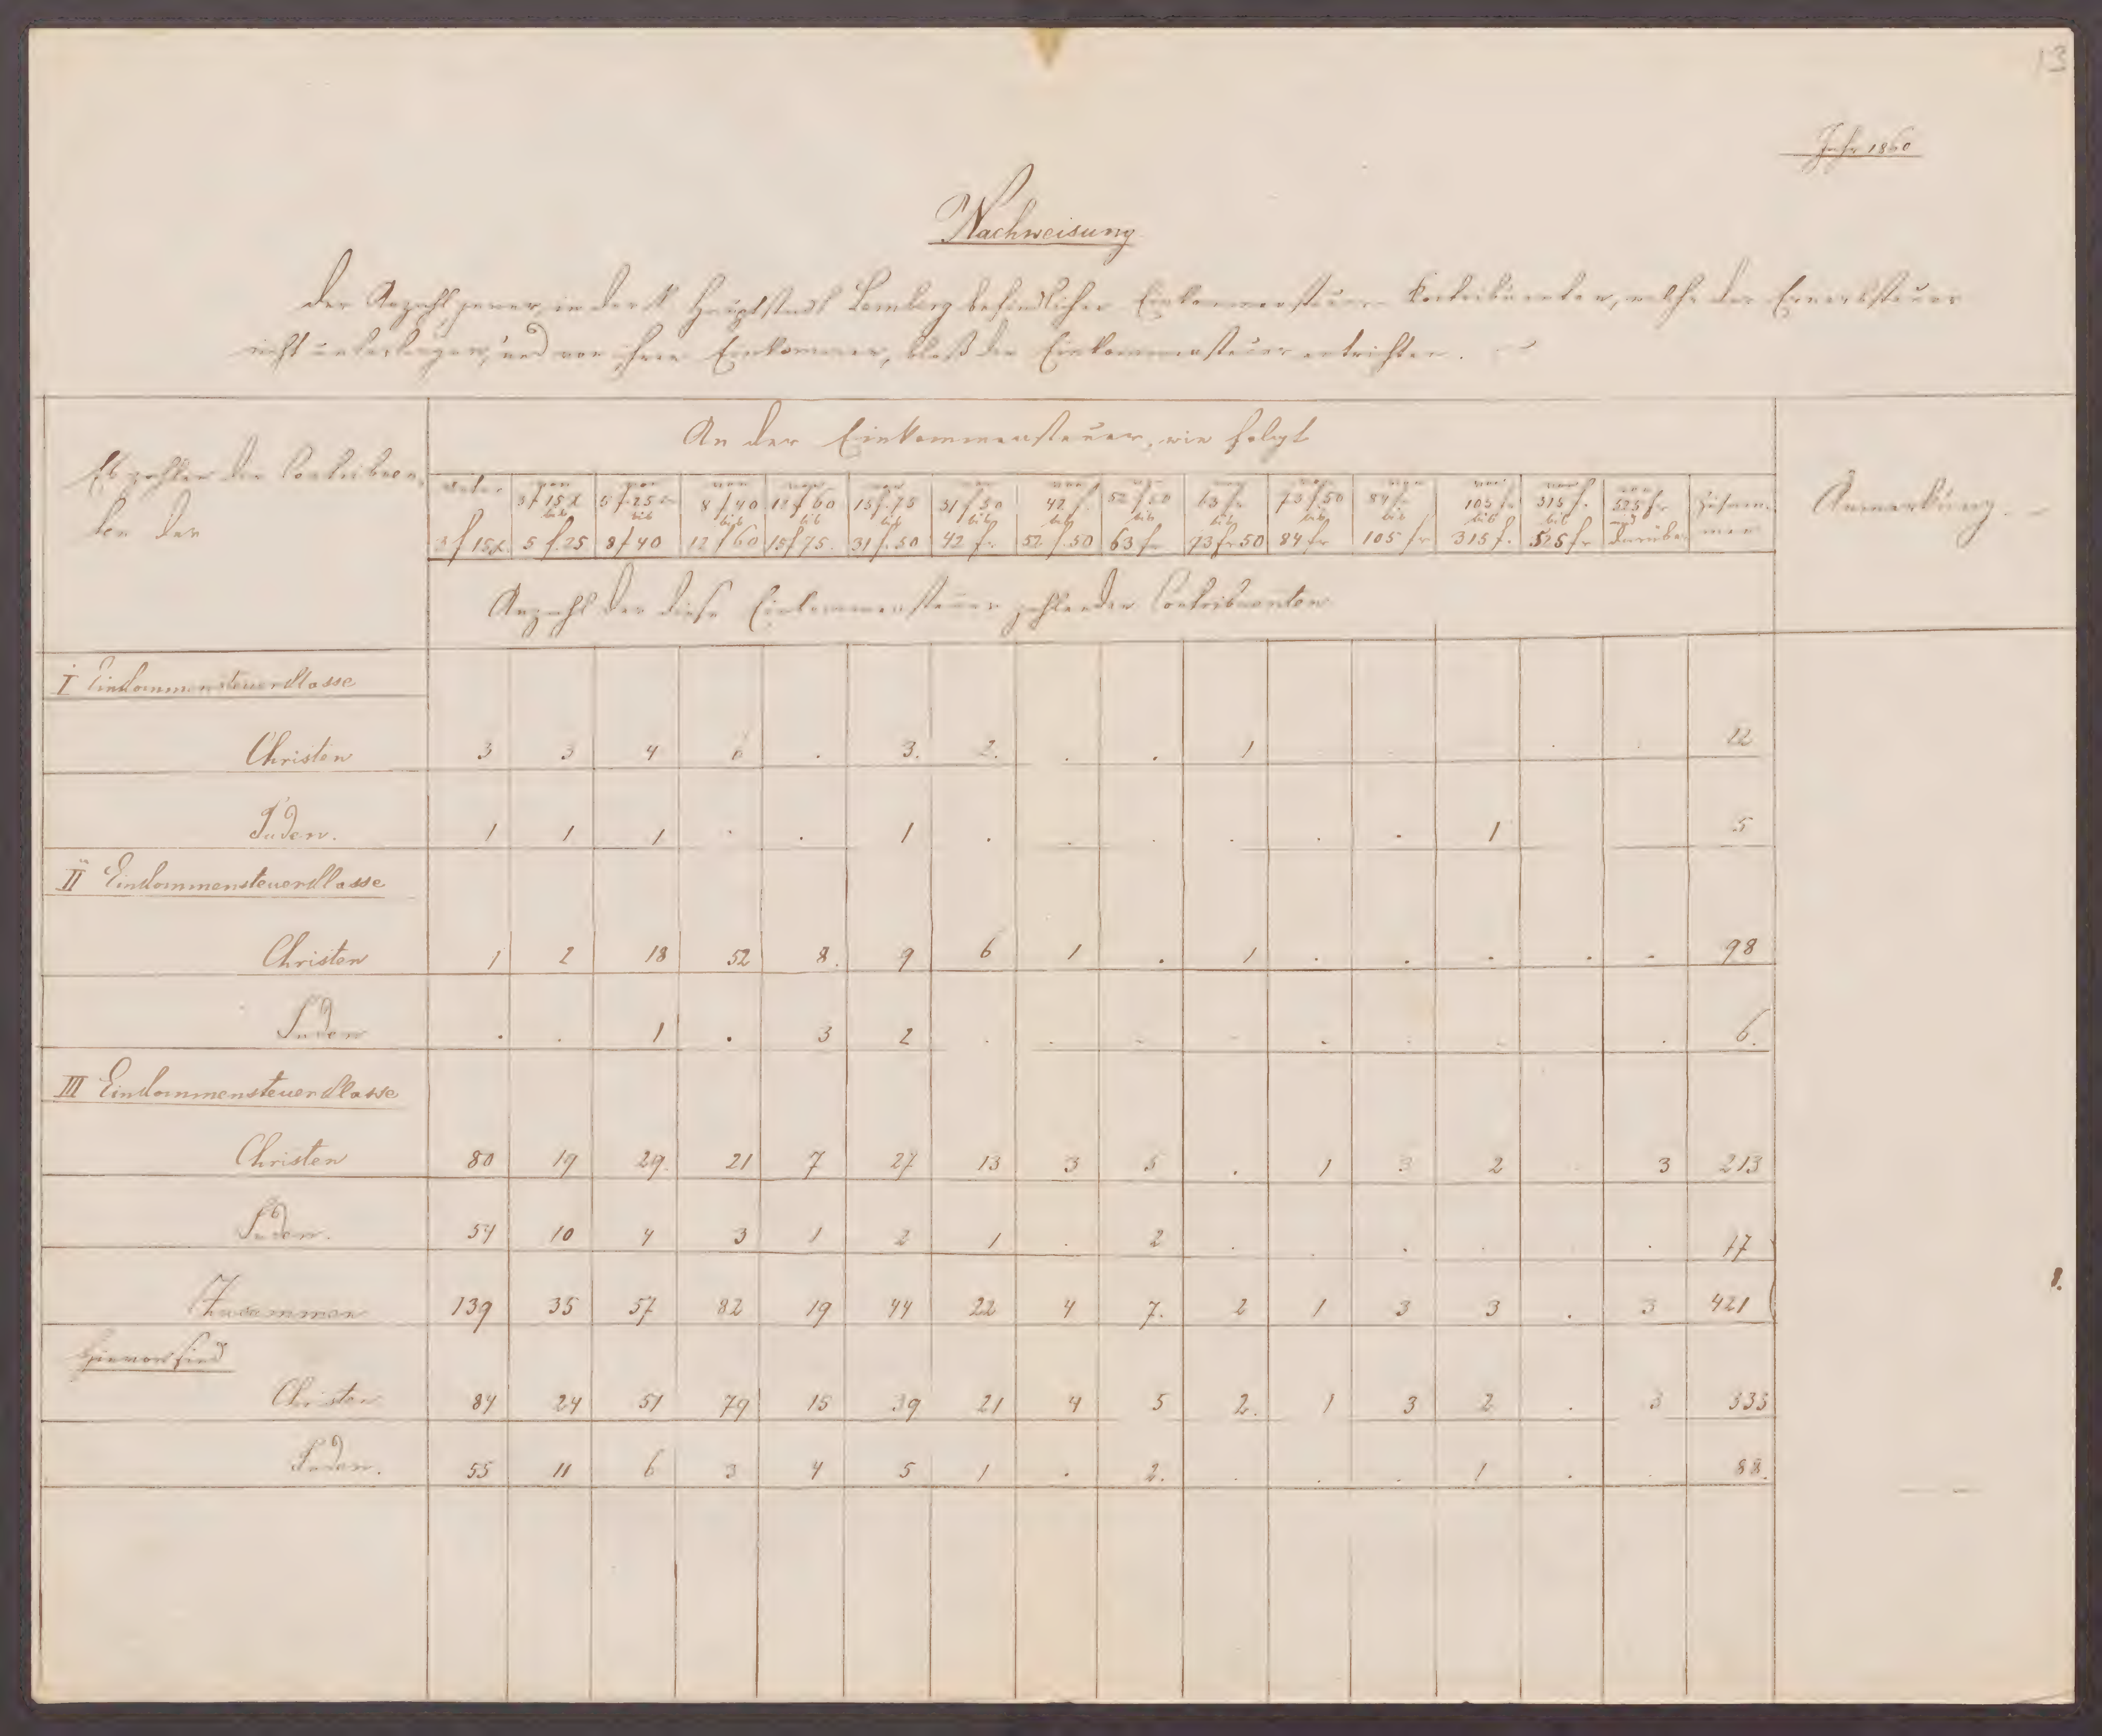 13
Jahr 1860
Nachweisung
der Anzahl jener, in der k Hauptstadt Lemberg befindlichen Einkommensteuer Contribuenten, welche der Erwerbsteuer
nicht unterliegen, und von ihrem Einkommen, bloß die Einkommensteuer entrichten.
Es zahlen die Contribuen-
ten der
An der Einkommensteuer, wie folgt
Anmerkung
unter 3 f 15 x
von 3 f 15 x bis 5 f. 25
von 5 f. 25 bis 8 f 40
von 8 f 40 bis 12 f 60
von 12 f 60 bis 15 f 75.
von 15 f. 75 bis 31 f. 50
von 31 f 50 bis 42 fr
von 42 f bis 52 f. 50
von 52 f 50 bis 63 fr
von 63 fr bis 73 fr 50
von 73 f 50 bis 84 fr
von 84 fr bis 105 fr
von 105 fr bis 315 f.
von 315 f. bis 525 fr
von 525 fr und darüber
Zusam-
men
Anzahl der diese Einkommensteuer zahlenden Contribuenten
I Einkommensteuerklasse
Christen 3 3 4 6 . 3. 2. . . 1 22
Juden. 1 1 1 . . 1 . . . . . . 1 5
II Einkommensteuerklasse
Christen 1 2 18 52 8. 9 6 1 . 1 . . . . . 98
Juden . . 1 . 3 2 . . . . . . . . 6.
III Einkommensteuerklasse
Christen 80 19 29. 21 7 27 13 3 5 . 1 3 2 . 3 213
Juden. 54 10 4 3 1 2 1 . 2 . . . . . 77
Zusammen 139 35 57 82 19 44 22 4 7. 2 1 3 3 . 3 421
Hievon sind
Christen 84 24 51 79 15 39 21 4 5 2. 1 3 2 . 3 333
Juden. 55 11 6 3 4 5 1 . 2. . . . 1 . . 88.